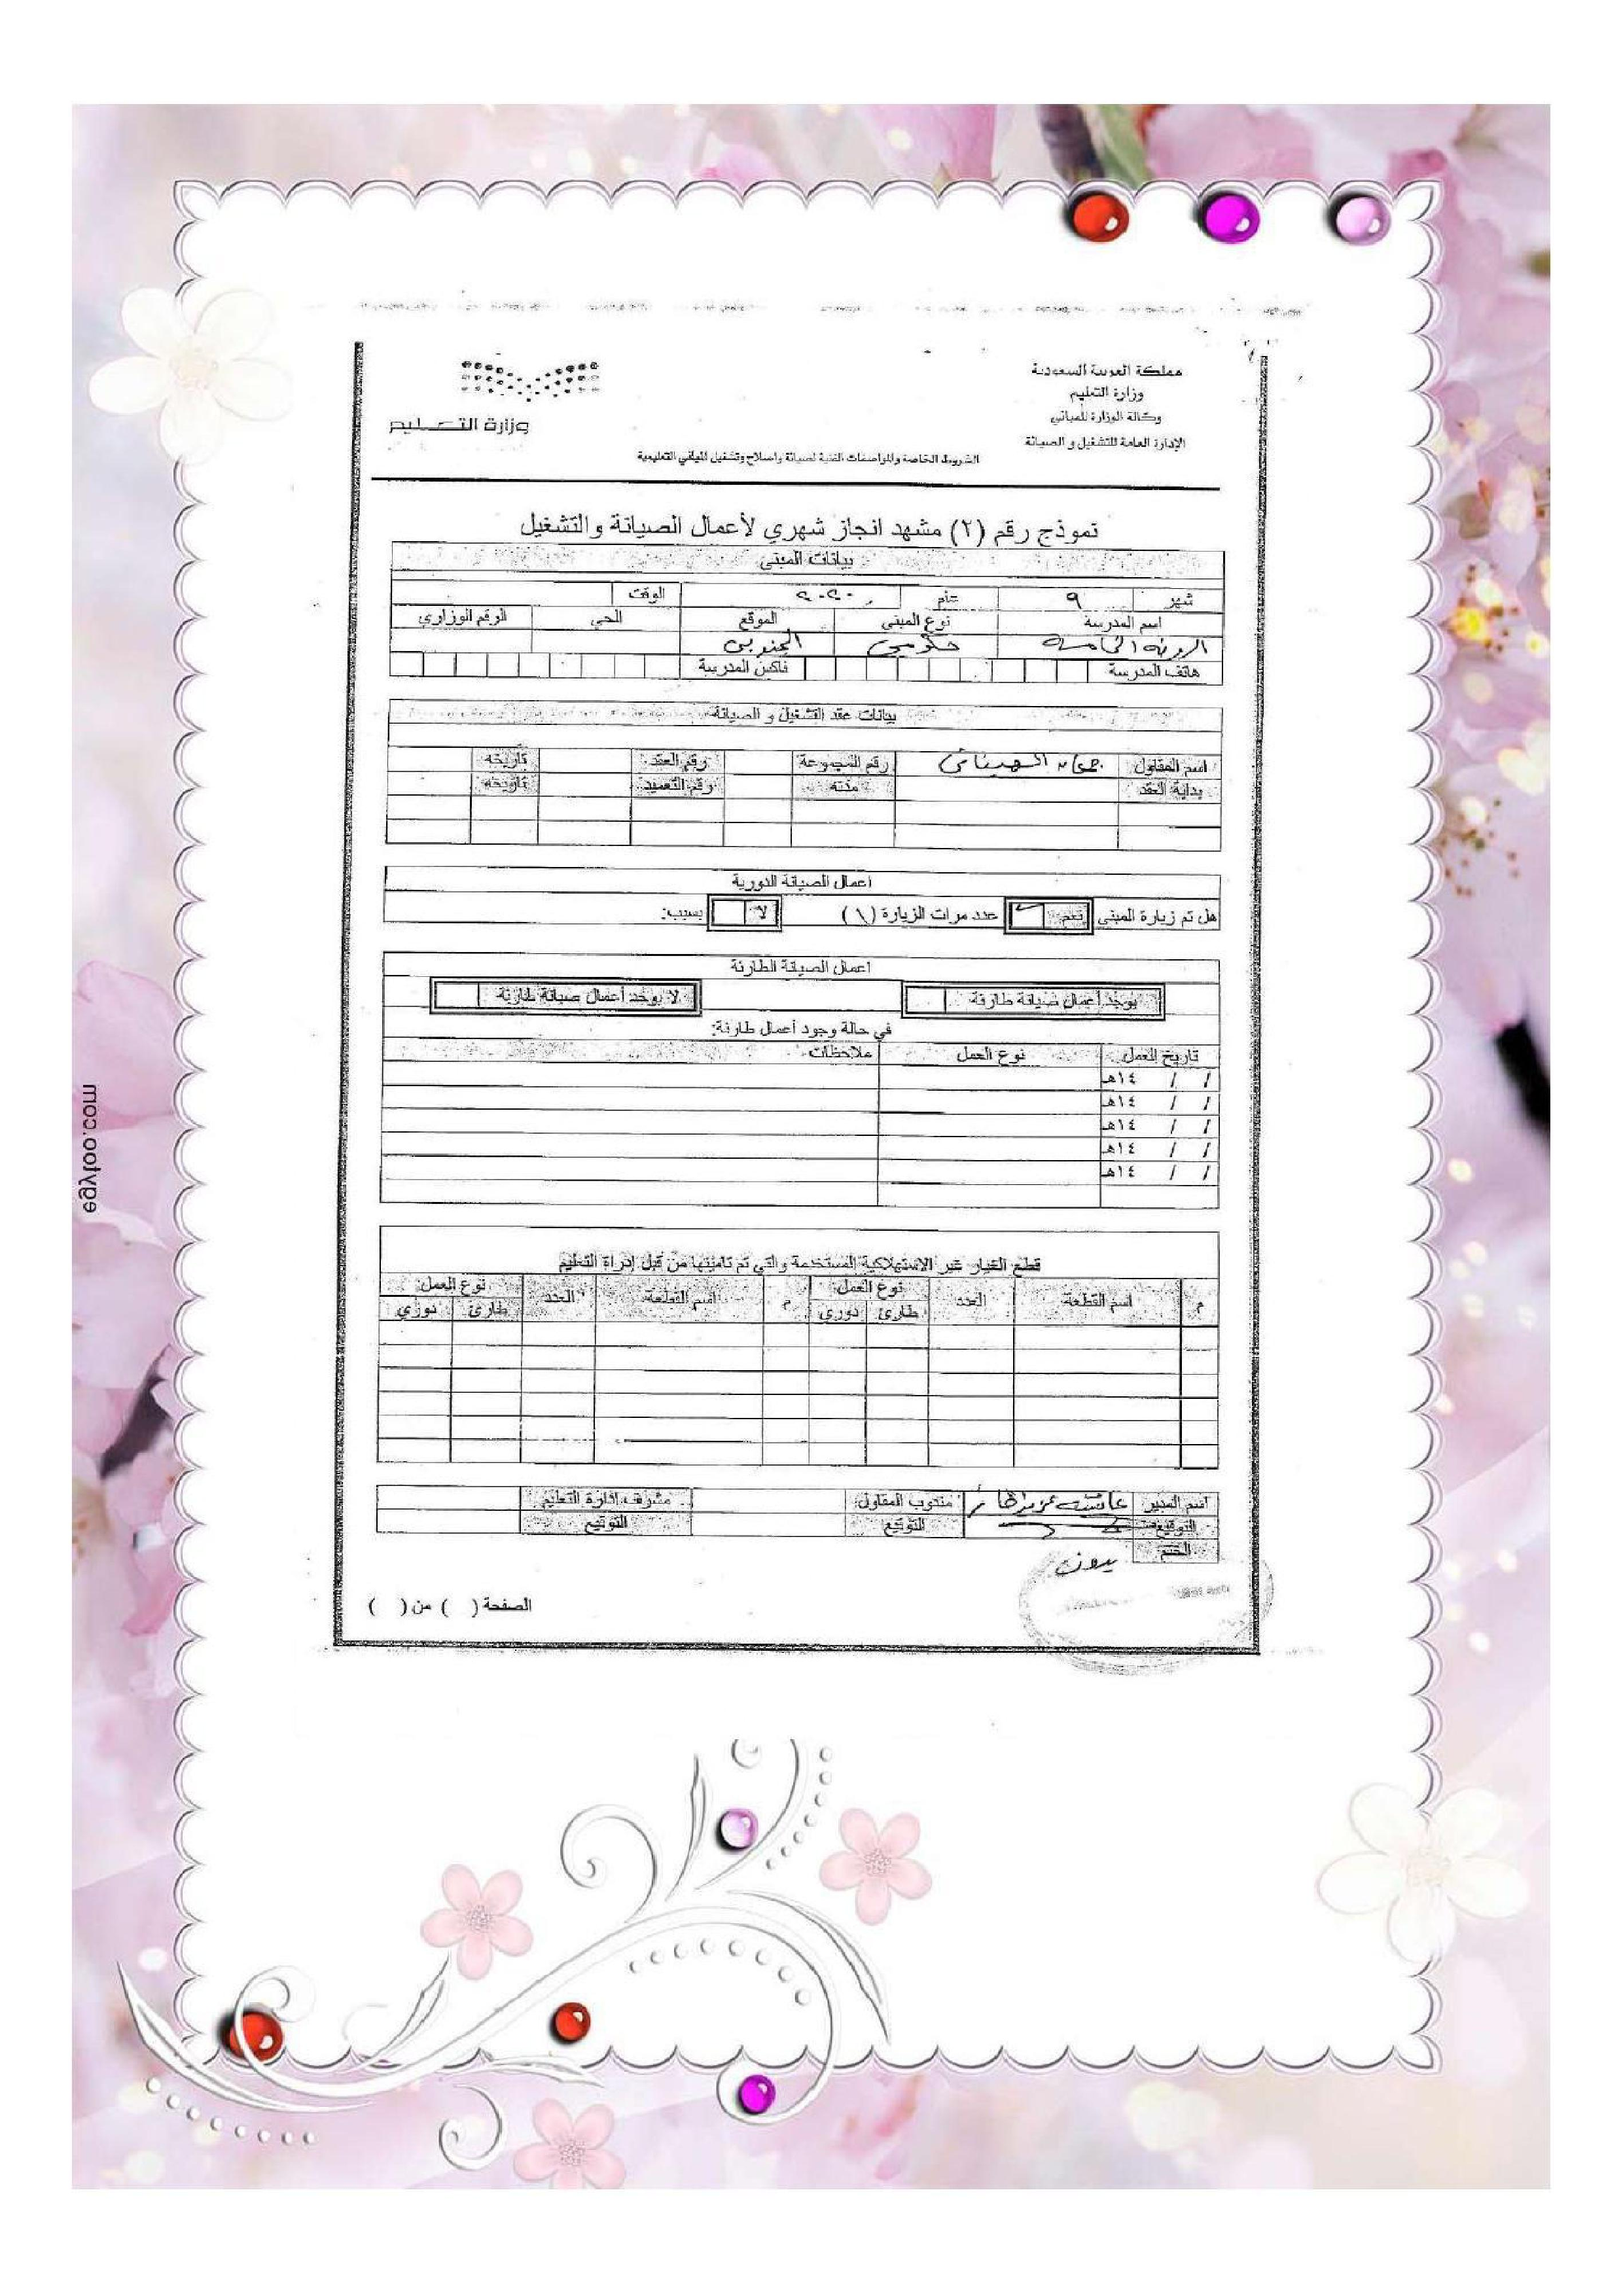 مملكة العربية السعودية
وزارة التعليم
وكالة الوزارة للمباني
الإدارة العامة للتشغيل و الصيانة
وزارة التعليم
الشروط الخاصة والمواصفات الفنية لصيانة واصلاح وتشغيل المباني التعليمية
نموذج رقم (٢) مشهد انجاز شهري لأعمال الصيانة والتشغيل
بيانات المبنى
شهر ٩ عام ٢٠٢٠ الوقت
اسم المدرسة نوع المبنى الموقع الحي الرقم الوزاري
الروضة الخامسة حكومي الجنوبي
هاتف المدرسة فاكس المدرسة
بيانات عقد التشغيل و الصيانة
اسم المقاول رقم المجموعة رقم العقد تاريخه
بداية العقد مدته رقم التعميد تاريخه
اعمال الصيانة الدورية
هل تم زيارة المبنى نعم عدد مرات الزيارة (١) لا بسبب:
اعمال الصيانة الطارئة
يوجد أعمال صيانة طارئة لا يوجد أعمال صيانة طارئة
في حالة وجود أعمال طارئة:
تاريخ العمل نوع العمل ملاحظات
/ / ١٤هـ
/ / ١٤هـ
/ / ١٤هـ
/ / ١٤هـ
/ / ١٤هـ
قطع الغيار غير الاستهلاكية المستخدمة والتي تم تامينها من قبل إدراة التعليم
م اسم القطعة العدد نوع العمل م اسم القطعة العدد نوع العمل
طارئ دوري طارئ دوري
اسم المدير عائشه مندوب المقاول مشرف إدارة التعليم
التوقيع التوقيع التوقيع
الختم
بدون
الصفحة ( ) من ( )
egyfoo.com